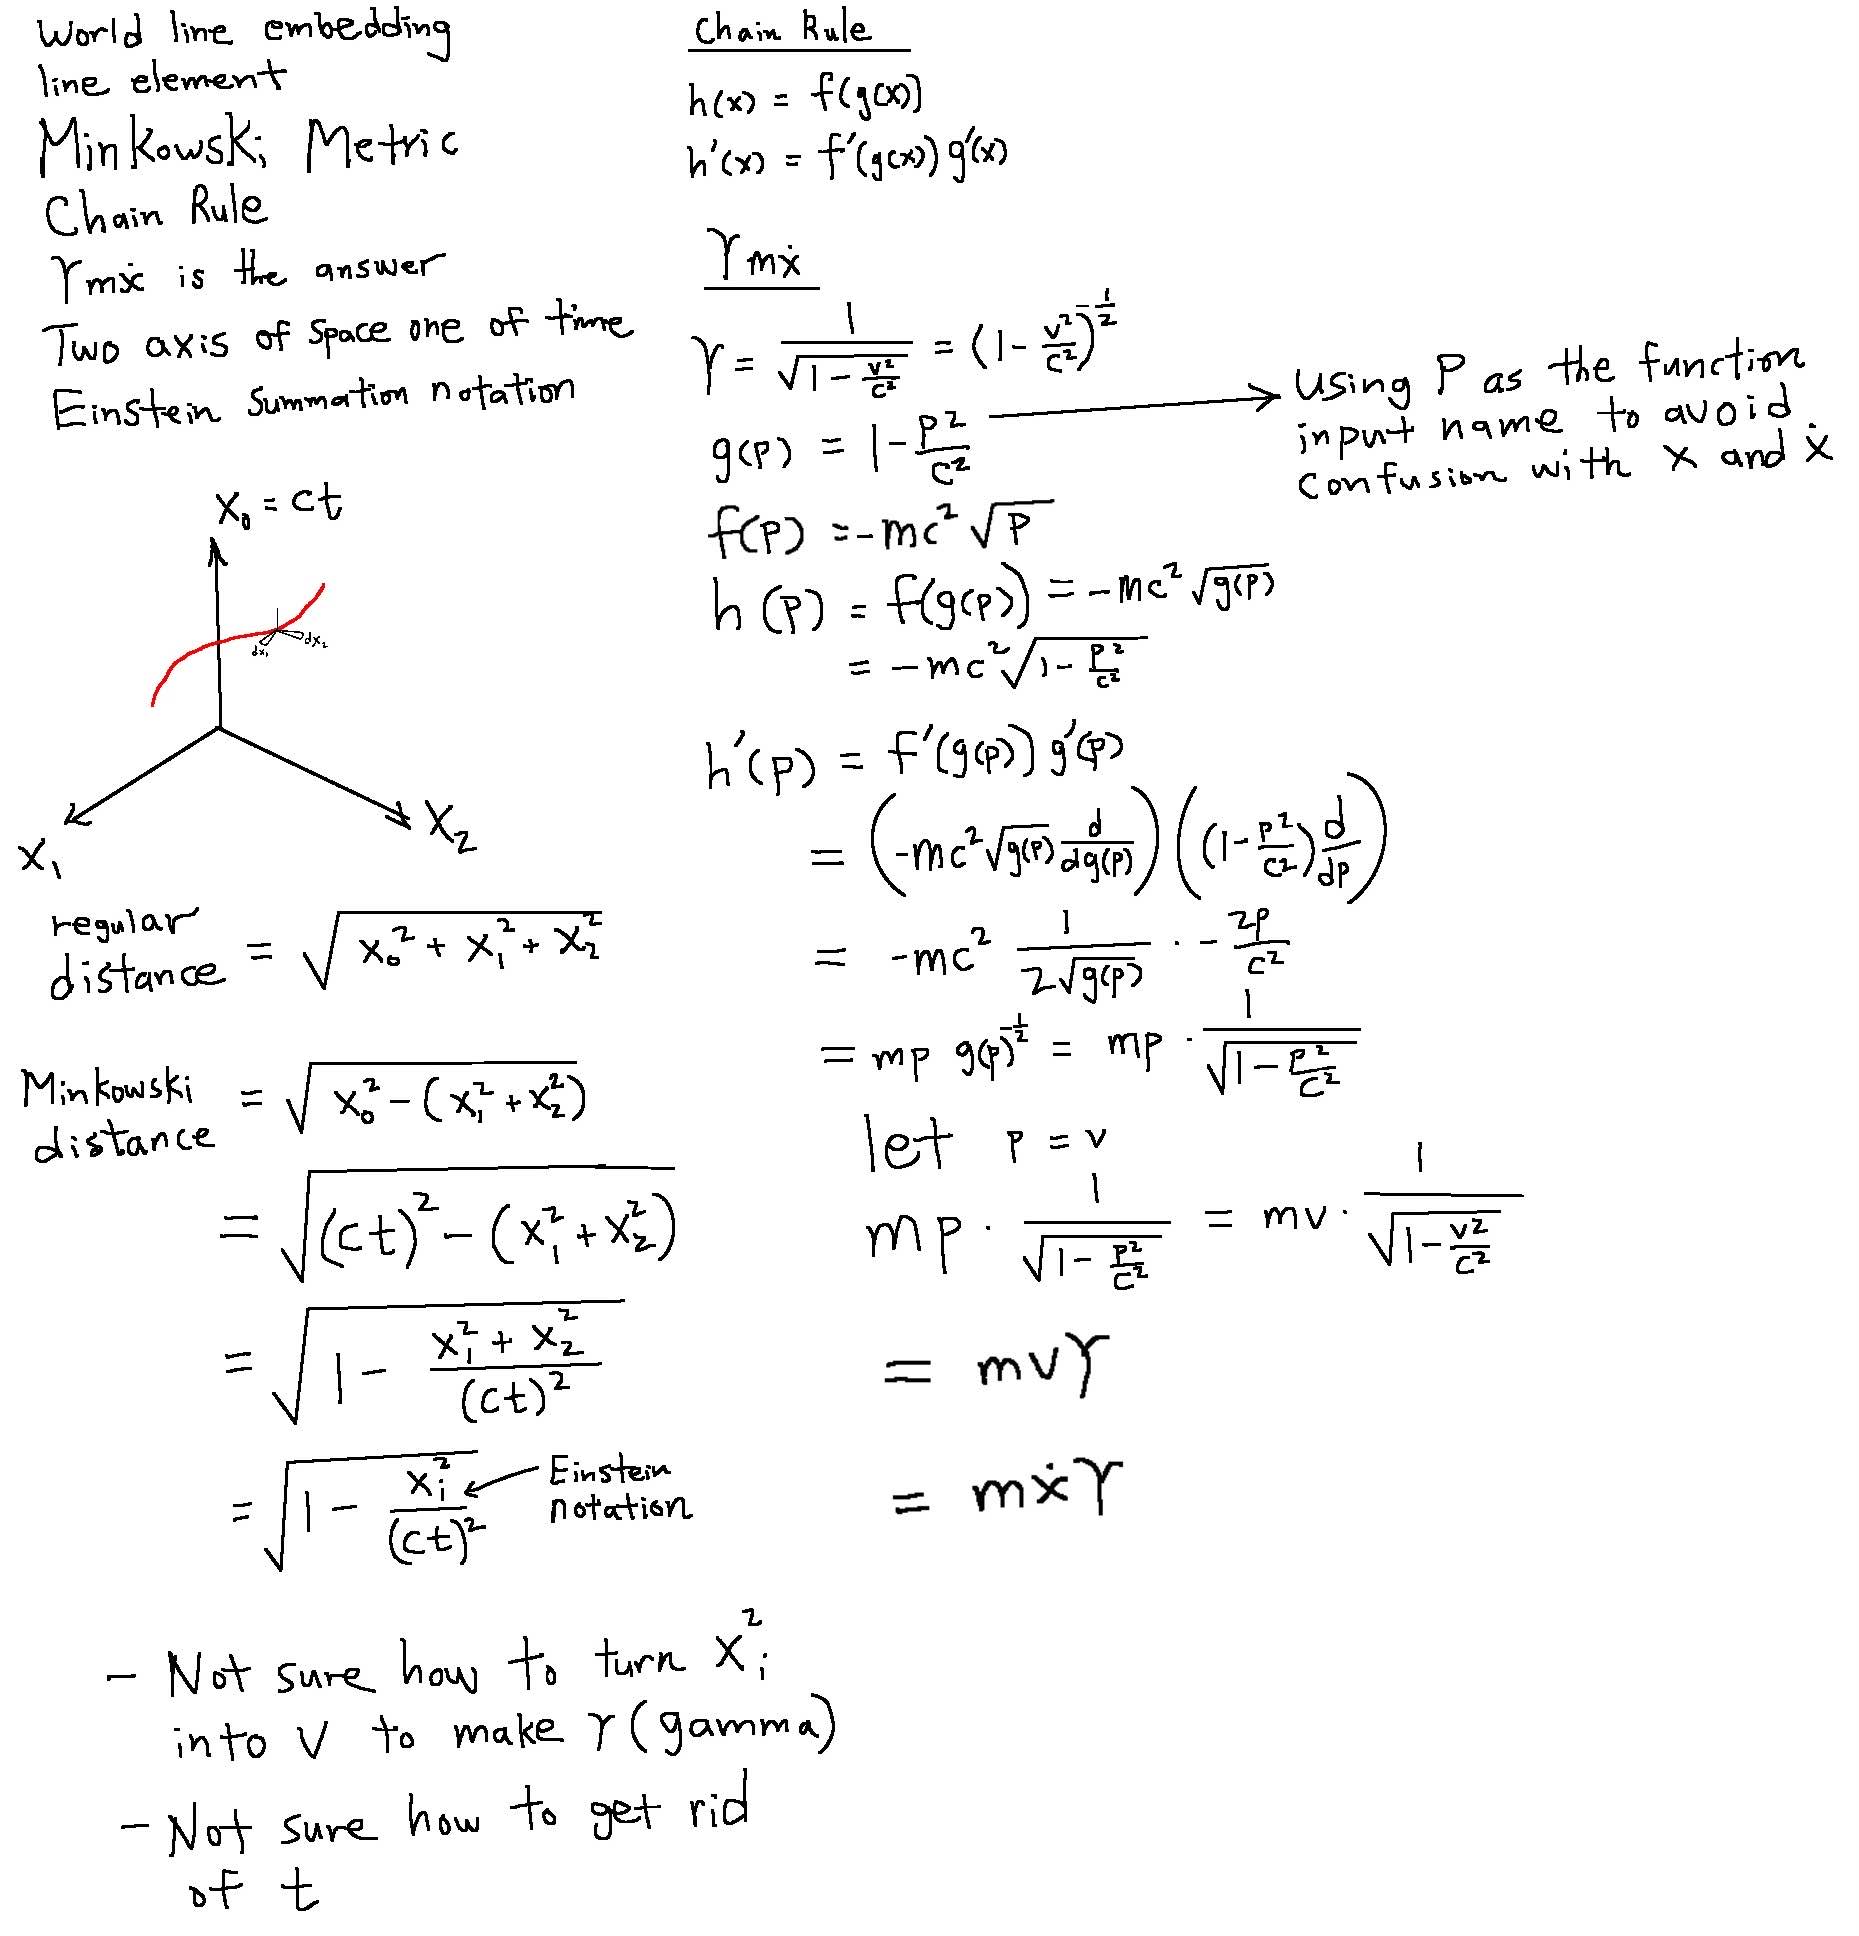 World line embedding
line element
Minkowski Metric
Chain Rule
γmẋ is the answer
Two axis of space one of time
Einstein Summation notation
x₀ = ct
dx₁
dx₂
x₁
x₂
regular distance = √(x₀² + x₁² + x₂²)
Minkowski distance = √(x₀² - (x₁² + x₂²))
= √((ct)² - (x₁² + x₂²))
= √(1 - (x₁² + x₂²)/(ct)²)
= √(1 - xᵢ²/(ct)²)
Einstein
notation
- Not sure how to turn xᵢ²
into v to make γ (gamma)
- Not sure how to get rid
of t
Chain Rule
h(x) = f(g(x))
h'(x) = f'(g(x)) g'(x)
γmẋ
γ = 1/√(1 - v²/c²) = (1 - v²/c²)^(-1/2)
g(p) = 1 - p²/c²
Using P as the function
input name to avoid
confusion with x and ẋ
f(p) = -mc² √p
h(p) = f(g(p)) = -mc² √g(p)
= -mc² √(1 - p²/c²)
h'(p) = f'(g(p)) g'(p)
= (-mc² √g(p) d/dg(p)) ((1 - p²/c²) d/dp)
= -mc² 1/(2√g(p)) · - 2p/c²
= mp g(p)^(-1/2) = mp · 1/√(1 - p²/c²)
let p = v
mp · 1/√(1 - p²/c²) = mv · 1/√(1 - v²/c²)
= mvγ
= mẋγ